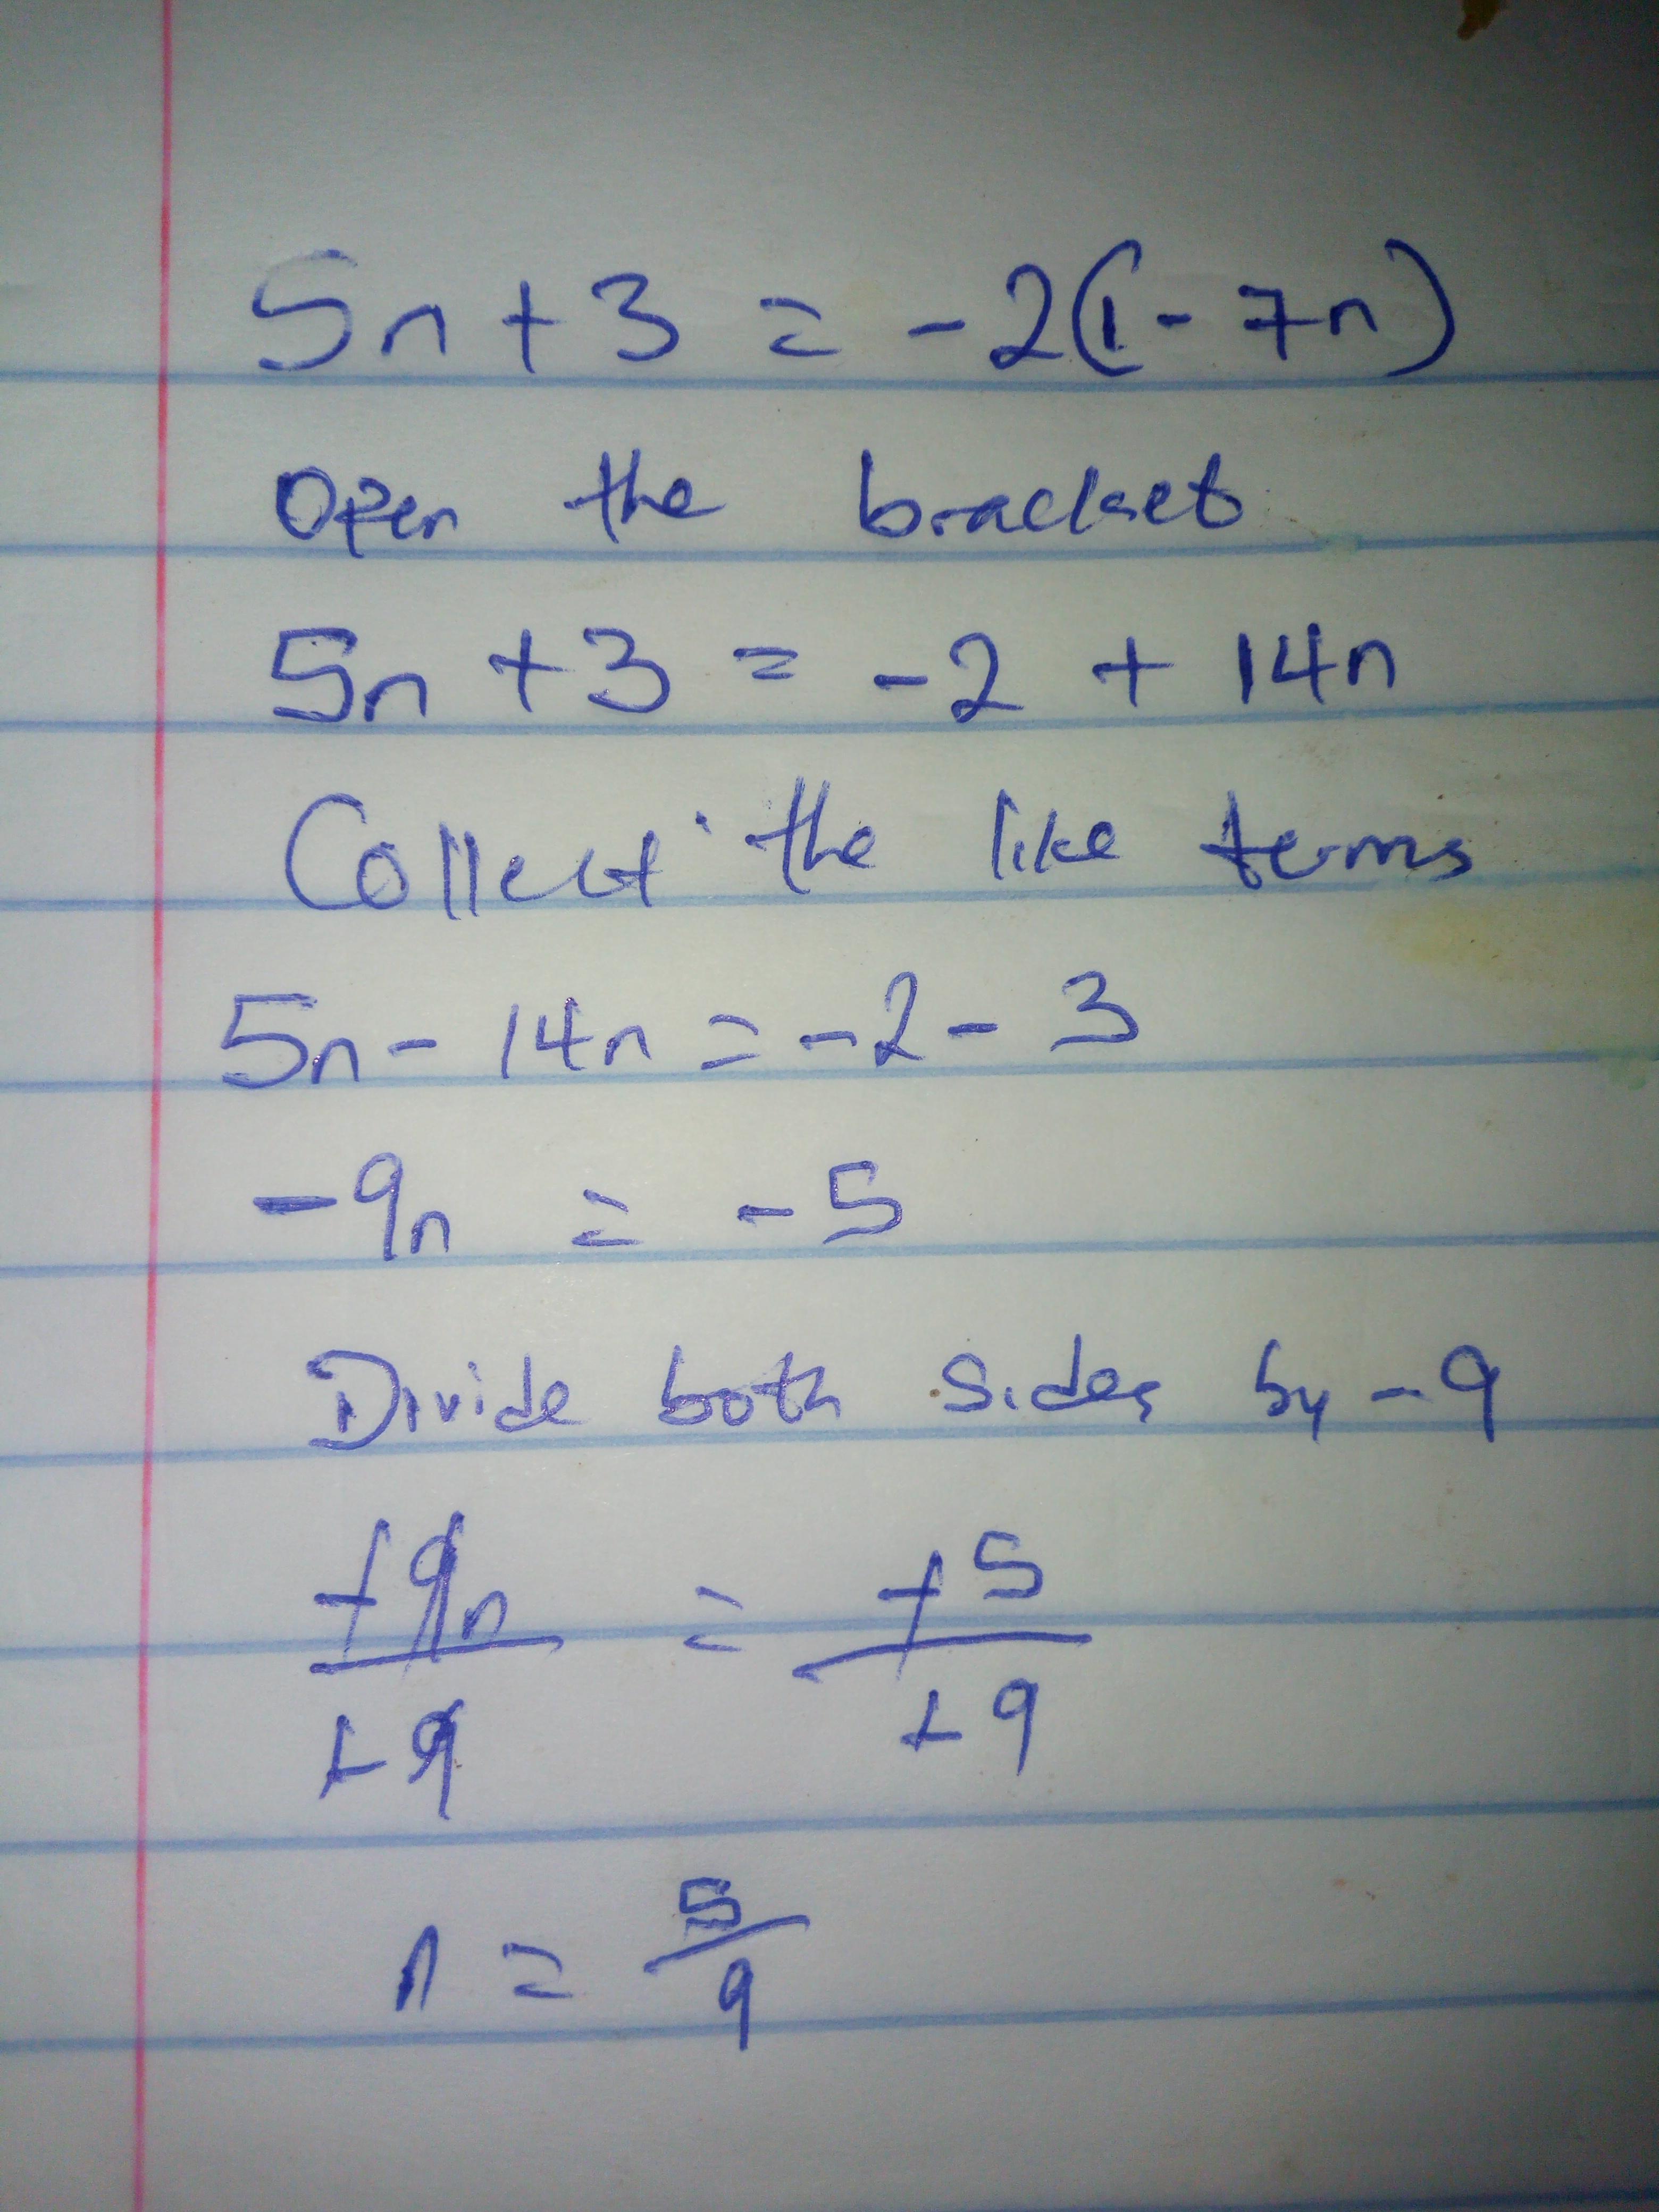 5n + 3 = -2(1 - 7n)
Open the bracket
5n + 3 = -2 + 14n
Collect the like terms
5n - 14n = -2 - 3
-9n = -5
Divide both sides by -9
-9n/-9 = -5/-9
n = 5/9